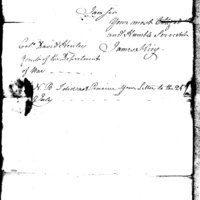 I am Sir
Your most Obliged
and Humble Servant
James King
Col. David Henley
Agent of the Department
of War
N.B. I did not Receive Your Letter to the 28th
July